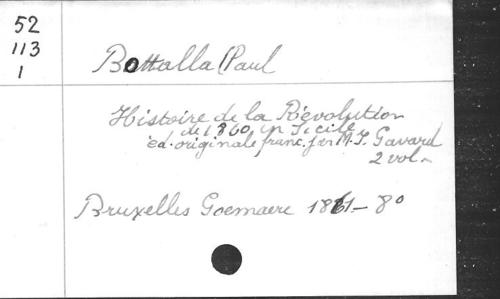 52
113
1
Bottalla (Paul
Histoire de la Révolution
de 1860 en Sicile
éd. originale franc. par M. J. Gavard
2 vol.
Bruxelles Goemaere 1861 – 8º